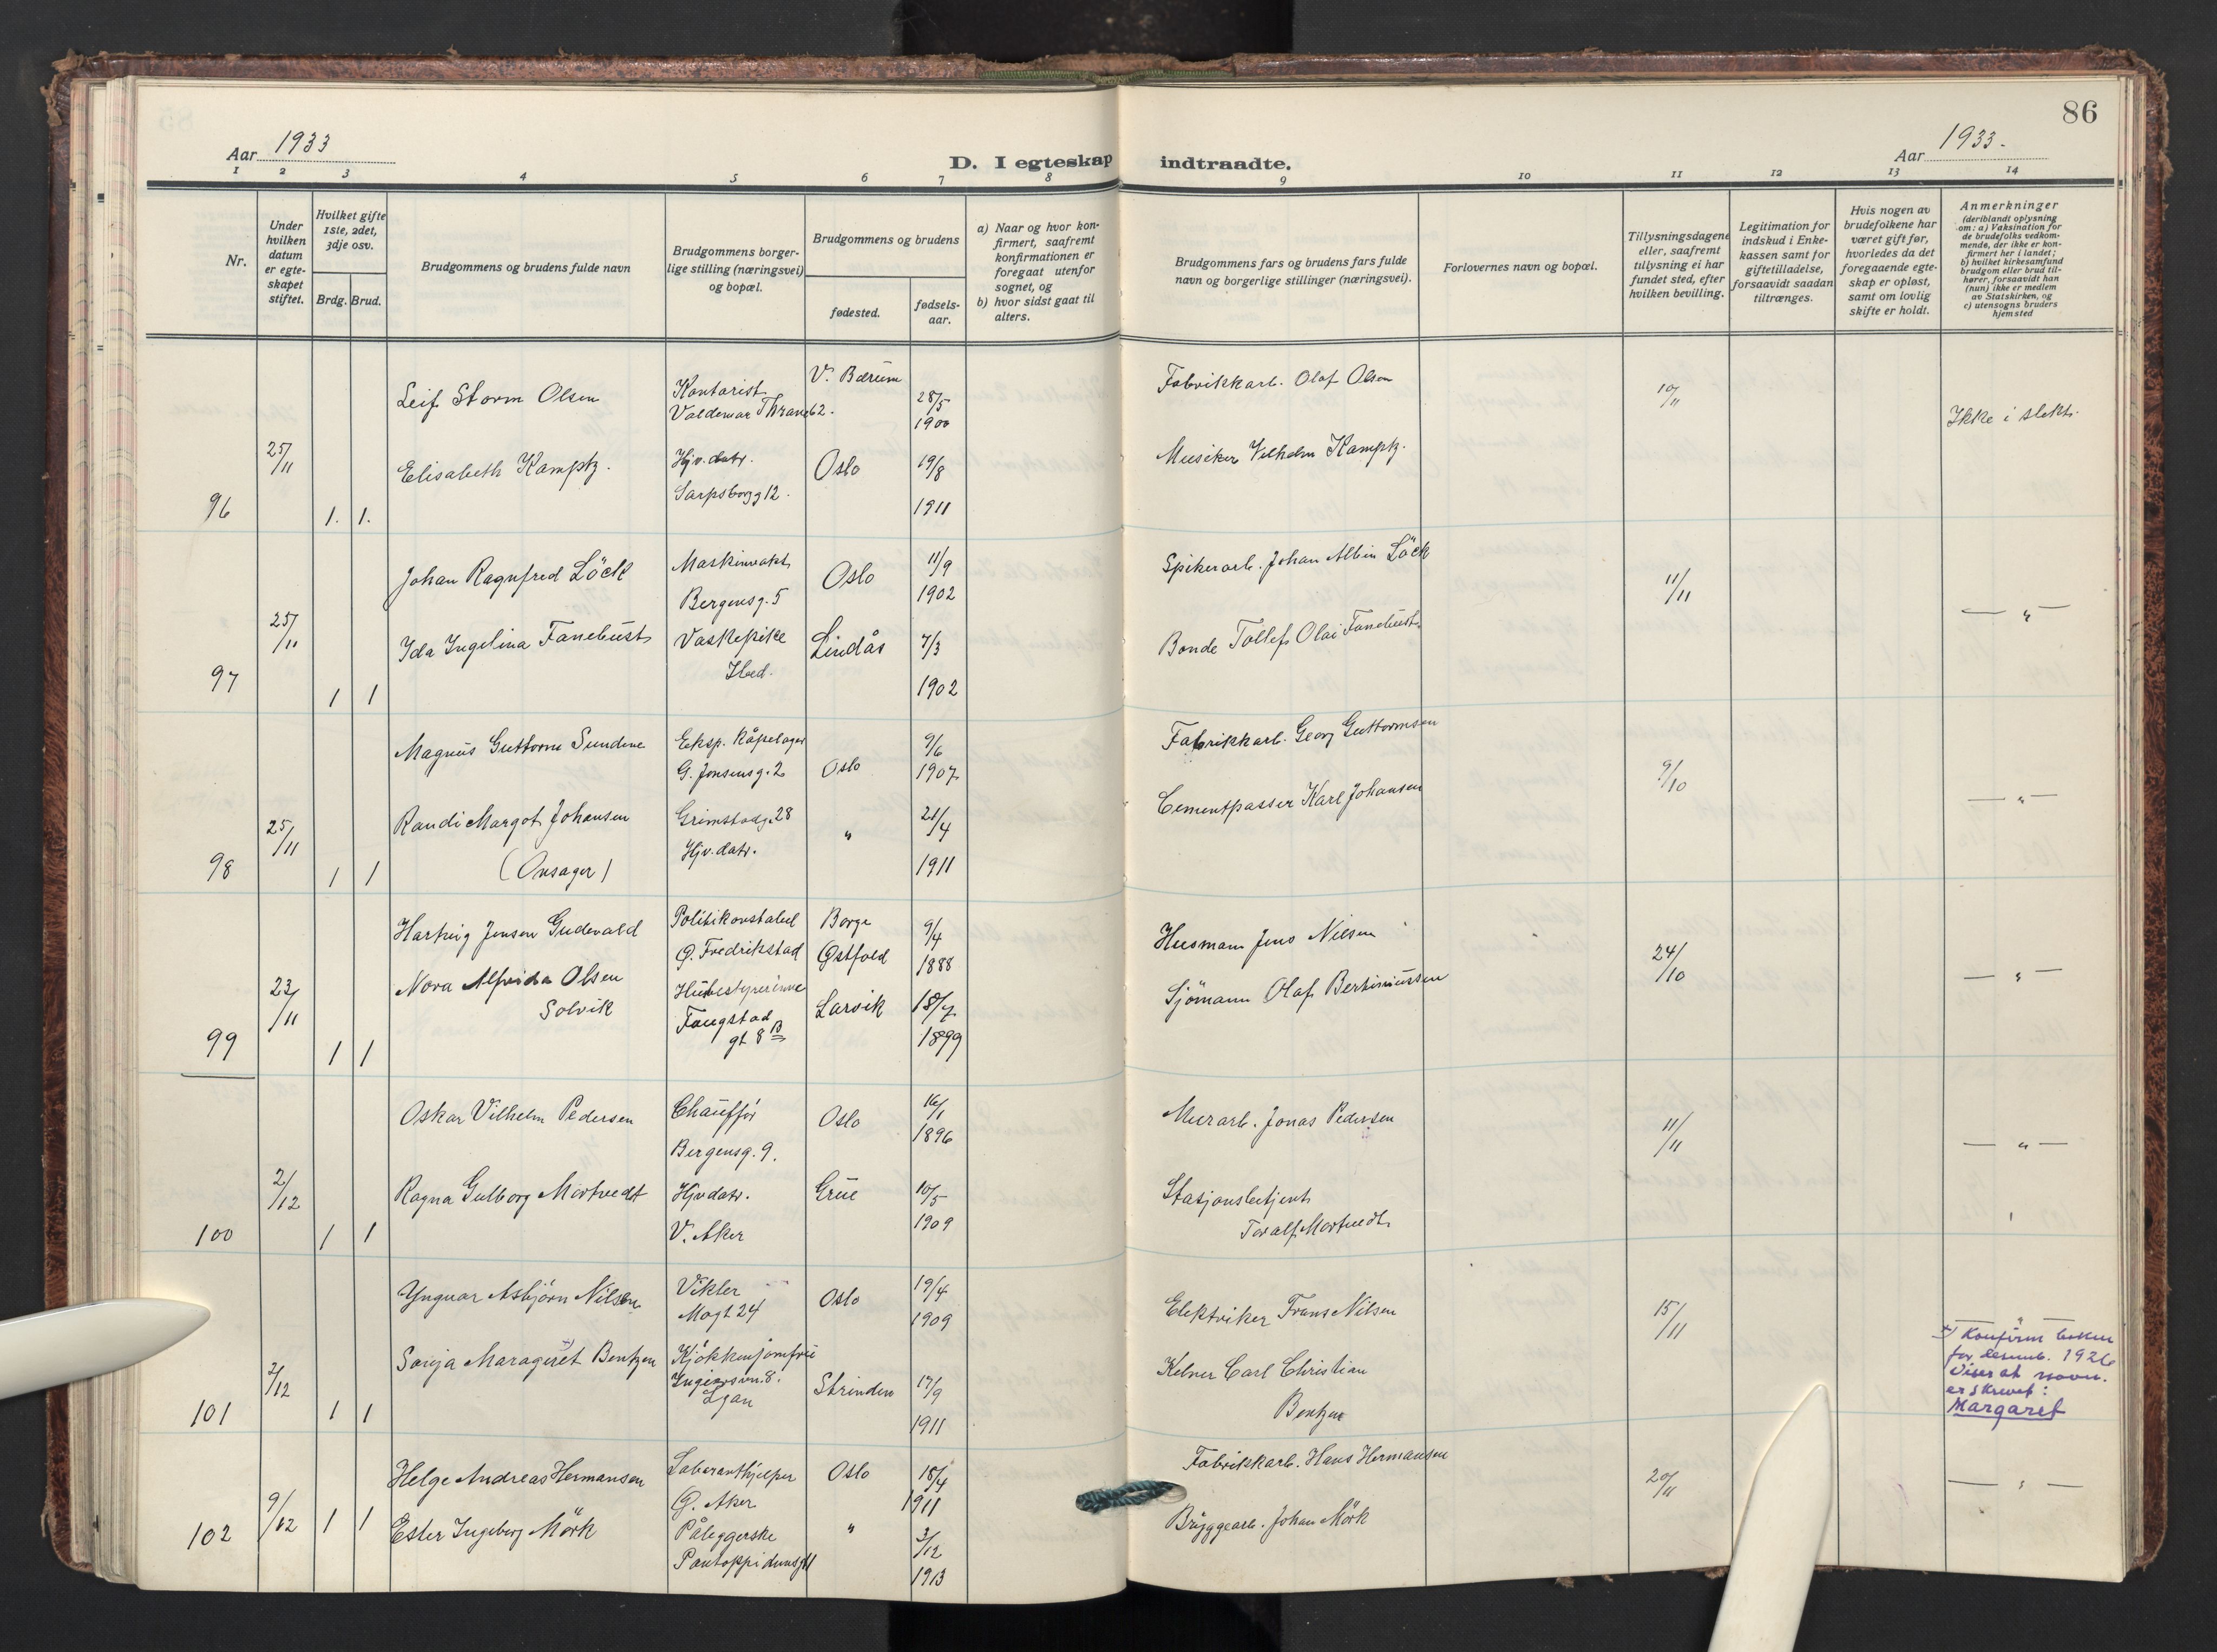 86
Aar 1933
D. I egteskap indtraadte.
Aar 1933.
1 2 3 4 5 6 7 8 9 10 11 12 13 14
Nr.
Under hvilken datum er egteskapet stiftet.
Hvilket gifte 1ste, 2det, 3dje osv.
Brdg. Brud.
Brudgommens og brudens fulde navn
Brudgommens borgerlige stilling (næringsvei) og bopæl.
Brudgommens og brudens
fødested.
fødselsaar.
a) Naar og hvor konfirmert, saafremt konfirmationen er foregaat utenfor sognet, og
b) hvor sidst gaat til alters.
Brudgommens fars og brudens fars fulde navn og borgerlige stillinger (næringsvei).
Forlovernes navn og bopæl.
Tillysningsdagene eller, saafremt tillysning ei har fundet sted, efter hvilken bevilling.
Legitimation for indskud i Enkekassen samt for giftetilladelse, forsaavidt saadan tiltrænges.
Hvis nogen av brudefolkene har været gift før, hvorledes da det foregaaende egteskap er opløst, samt om lovlig skifte er holdt.
Anmerkninger
(deriblandt oplysning om: a) Vaksination for de brudefolks vedkommende, der ikke er konfirmert her i landet; b) hvilket kirkesamfund brudgom eller brud tilhører, forsaavidt han (hun) ikke er medlem av Statskirken, og c) utensogns bruders hjemsted
Leif Storm Olsen Kontorist V. Bærum Fabrikkarb. Olaf Olsen 10/11
Valdemar Thranes 62. 28/5 1900 Ikke i slekt.
25/11 Elisabeth Kamptz. Hjv. datr. Oslo 19/8 Musiker Vilhelm Kamptz.
Sarpsborgg 12.
96 1. 1. 1911
Johan Ragnfred Löck Maskinvakt Oslo 11/9 Spikerarb. Johan Albin Löck
Bergensg. 5 1902 11/11 — " —
25/11 Ida Ingelina Fanebust Vaskepike Lindås 7/3 Bonde Tollef Olai Fanebust
Ibid.
97 1 1 1902
Magnus Guttorm Sundene Eksp. Kåpelager 9/6 Fabrikkarb. Georg Guttormsen
G. Jonsensg. 2 Oslo 1907 9/10
25/11 Randi Margot Johansen Grimstadg. 28 " 21/4 Cementpasser Karl Johansen — " —
Hjv. datr.
98 1 1 (Onsager) 1911
Hartvig Jensen Gudevald Politikonstabel Borge 9/4 Husmann Jens Nilsen
G. Fredrikstad Østfold 1888 24/10
23/11 Nora Alfrida Olsen Husbestyrerinne Larvik 18/7 Sjömann Olaf Bertiniussen — " —
Solvik Faugstad
99 1 1 gt 8 B 1899
Oskar Vilhelm Pedersen Chaufför Oslo 16/1 Murarb. Jonas Pedersen 11/11
Bergensg. 9. 1896 — " —
2/12 Ragna Gulborg Mortvedt Hjv datr. Grue 10/5 Stasjonsbetjent
100 1 1 V. Aker 1909 Toralf Mortvedt
Yngvar Asbjörn Nilsen Vikler Oslo 19/4 Elektriker Frans Nilsen 15/11
Mogt 24 1909 — " —
2/12 Sonja Maragret x) Bentzen Kjökkenjomfru Strinden 17/9 Kelner Carl Christian
101 1 1 1911 Bentzen
x) Konfirm boken
for desemb. 1926
viser at navn.
er skrevet:
Margaret
Helge Andreas Hermansen Laboranthjelper Oslo 18/4 Fabrikkarb. Hans Hermansen 20/11
G. Aker 1911 — " —
102 9/12 1 1 Ester Ingeborg Mörk Påleggerske " 3/12 Bryggearb. Johan Mörk
Pontoppidansg 11 1913